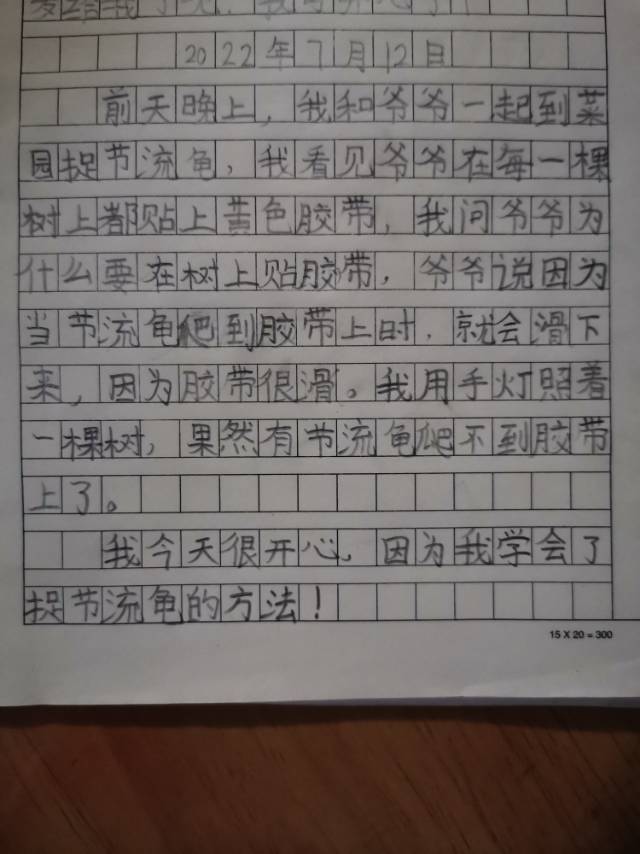 2022年7月12日
前天晚上，我和爷爷一起到菜
园捉节流龟，我看见爷爷在每一棵
树上都贴上黄色胶带，我问爷爷为
什么要在树上贴胶带，爷爷说因为
当节流龟爬到胶带上时，就会滑下
来，因为胶带很滑。我用手灯照着
一棵树，果然有节流龟爬不到胶带
上了。
我今天很开心，因为我学会了
捉节流龟的方法！
15 X 20 = 300